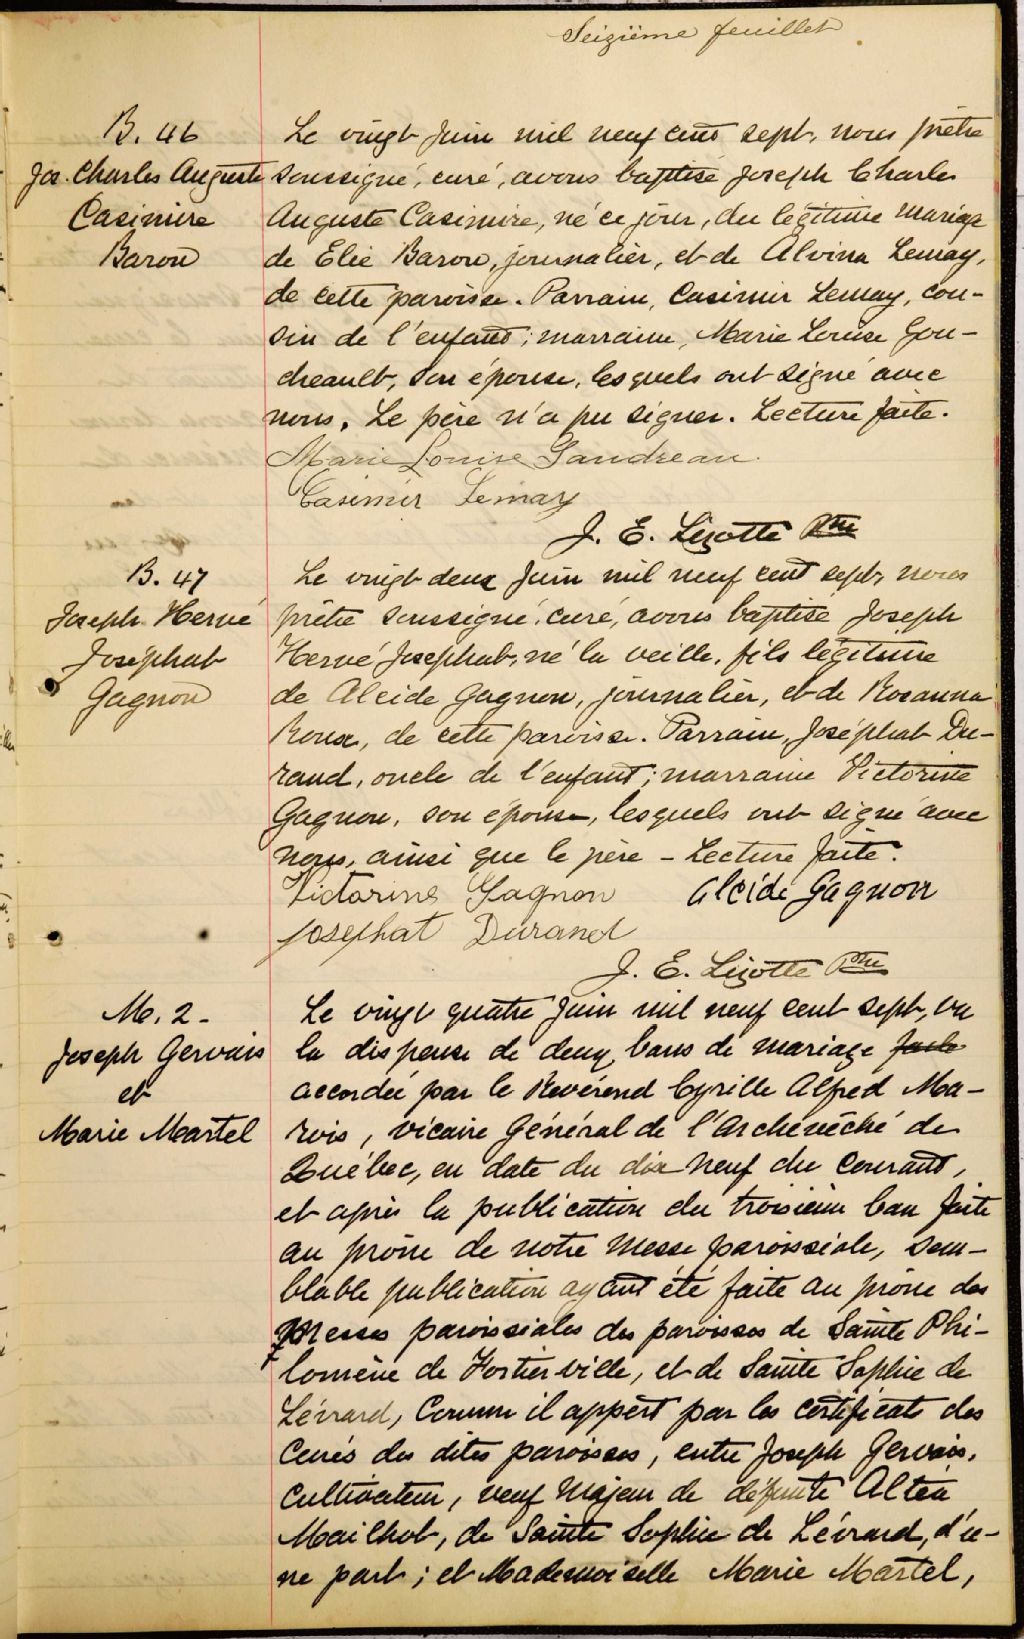 Seizième feuillet
B. 46
Jos. Charles Auguste
Casimire
Baron
Le vingt Juin mil neuf cent sept, nous prêtre
soussigné, curé, avons baptisé Joseph Charles
Auguste Casimire, né ce jour, du légitime mariage
de Elie Baron, journalier, et de Alvina Lemay,
de cette paroisse. Parrain, Casimir Lemay, cou-
sin de l'enfant; marraine, Marie Louise Gou-
dreault, son épouse, lesquels ont signé avec
nous. Le père n'a pu signer. Lecture faite.
Marie Louise Gaudreau.
Casimir Lemay
J. E. Lizotte Ptre
B. 47
Joseph Hervé
Joséphat
Gagnon
Le vingt deux Juin mil neuf cent sept, nous
prêtre soussigné, curé, avons baptisé Joseph
Hervé Josephat, né la veille, fils légitime
de Alcide Gagnon, journalier, et de Rosanna
Roux, de cette paroisse. Parrain, Joséphat Du-
rand, oncle de l'enfant; marraine Victorine
Gagnon, son épouse, lesquels ont signé avec
nous, ainsi que le père - Lecture faite.
Victorine Gagnon Alcide Gagnon
Josephat Durand
J. E. Lizotte Ptre
M. 2 -
Joseph Gervais
et
Marie Martel
Le vingt quatre Juin mil neuf cent sept, vu
la dispense de deux bans de mariage faite
accordée par le Révérend Cyrille Alfred Ma-
rois, vicaire Général de l'Archevêché de
Québec, en date du dix neuf du courant,
et après la publication du troisième ban faite
au prône de notre Messe paroissiale, sem-
blable publication ayant été faite au prône des
Messes paroissiales des paroisses de Sainte Phi-
lomène de Fortierville, et de Sainte Sophie de
Lévrard, Comme il appert par les certificats des
Curés des dites paroisses, entre Joseph Gervais,
Cultivateur, veuf Majeur de défunte Altéa
Mailhot, de Sainte Sophie de Lévrard, d'u-
ne part; et Mademoiselle Marie Martel,